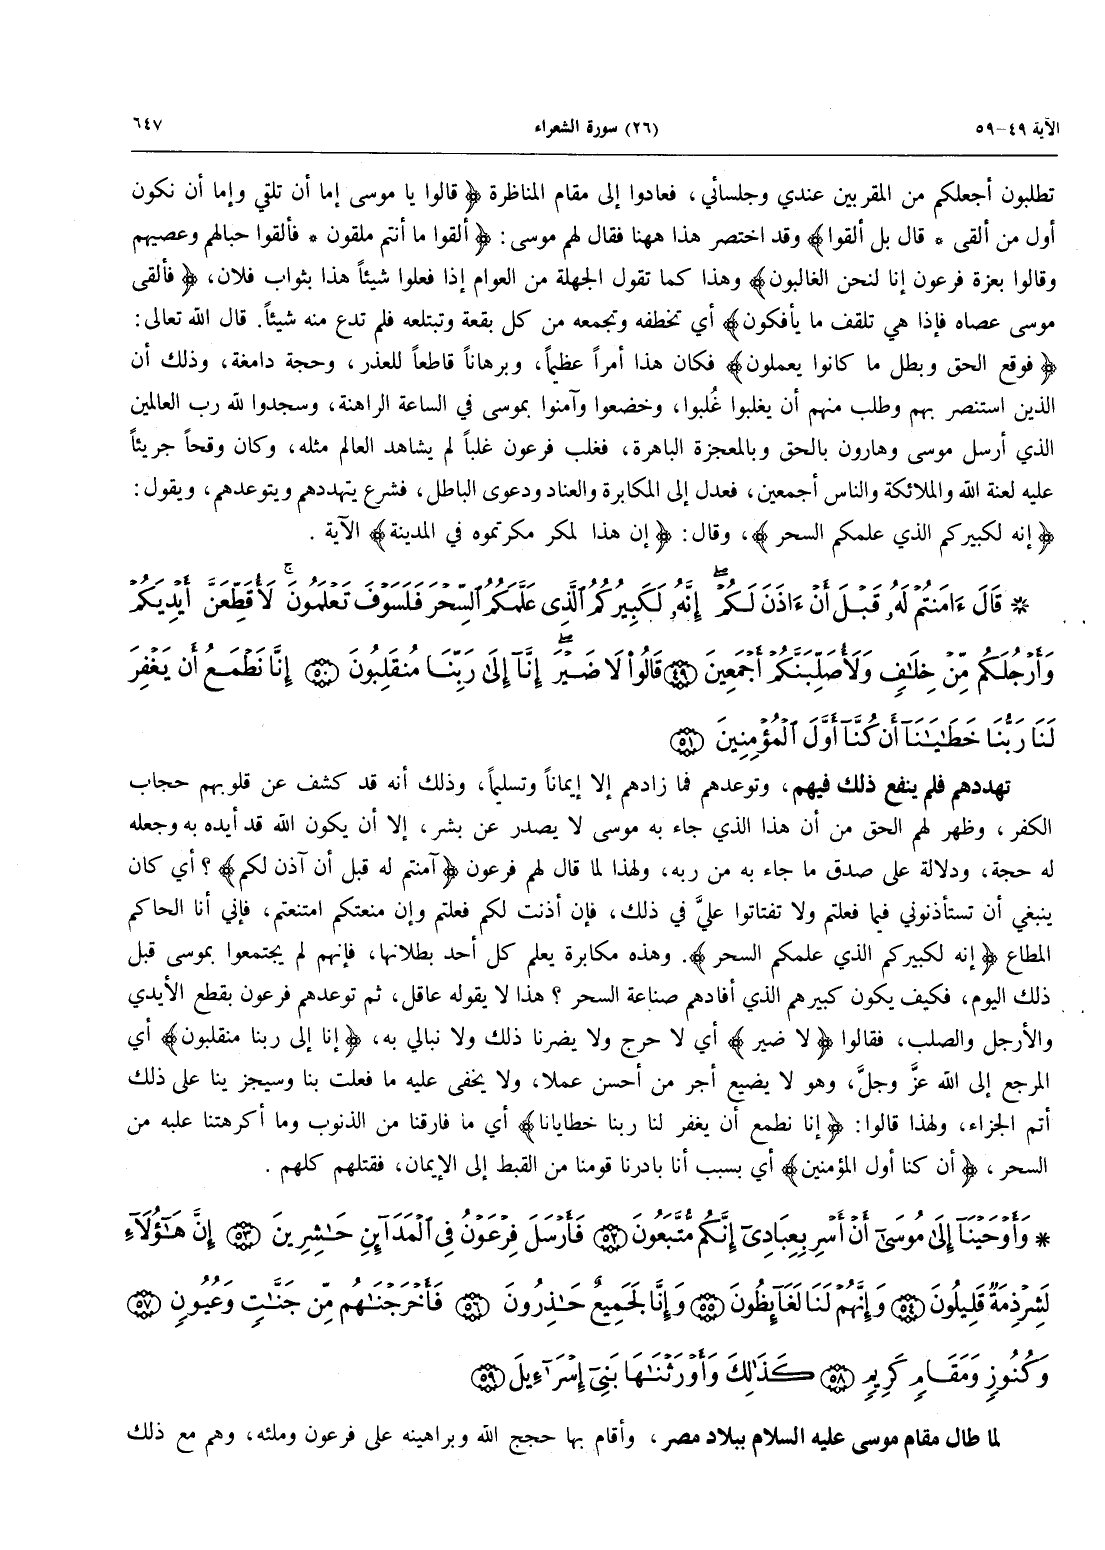 الآية ٤٩-٥٩ (٢٦) سورة الشعراء ٦٤٧
تطلبون أجعلكم من المقربين عندي وجلسائي، فعادوا إلى مقام المناظرة ﴿قالوا يا موسى إما أن تلقي وإما أن نكون
أول من ألقى * قال بل ألقوا﴾ وقد اختصر هذا ههنا فقال لهم موسى: ﴿ألقوا ما أنتم ملقون * فألقوا حبالهم وعصيهم
وقالوا بعزة فرعون إنا لنحن الغالبون﴾ وهذا كما تقول الجهلة من العوام إذا فعلوا شيئاً هذا بثواب فلان، ﴿فألقى
موسى عصاه فإذا هي تلقف ما يأفكون﴾ أي تخطفه وتجمعه من كل بقعة وتبتلعه فلم تدع منه شيئاً. قال الله تعالى:
﴿فوقع الحق وبطل ما كانوا يعملون﴾ فكان هذا أمراً عظيماً، وبرهاناً قاطعاً للعذر، وحجة دامغة، وذلك أن
الذين استنصر بهم وطلب منهم أن يغلبوا غُلبوا، وخضعوا وآمنوا بموسى في الساعة الراهنة، وسجدوا لله رب العالمين
الذي أرسل موسى وهارون بالحق وبالمعجزة الباهرة، فغلب فرعون غلباً لم يشاهد العالم مثله، وكان وقحاً جريئاً
عليه لعنة الله والملائكة والناس أجمعين، فعدل إلى المكابرة والعناد ودعوى الباطل، فشرع يتهددهم ويتوعدهم، ويقول:
﴿إنه لكبيركم الذي علمكم السحر﴾، وقال: ﴿إن هذا لمكر مكرتموه في المدينة﴾ الآية .
* قَالَ ءَامَنتُمْ لَهُۥ قَبْلَ أَنْ ءَاذَنَ لَكُمْ ۖ إِنَّهُۥ لَكَبِيرُكُمُ ٱلَّذِى عَلَّمَكُمُ ٱلسِّحْرَ فَلَسَوْفَ تَعْلَمُونَ ۚ لَأُقَطِّعَنَّ أَيْدِيَكُمْ
وَأَرْجُلَكُم مِّنْ خِلَٰفٍ وَلَأُصَلِّبَنَّكُمْ أَجْمَعِينَ ٤٩ قَالُوا۟ لَا ضَيْرَ ۖ إِنَّآ إِلَىٰ رَبِّنَا مُنقَلِبُونَ ٥٠ إِنَّا نَطْمَعُ أَن يَغْفِرَ
لَنَا رَبُّنَا خَطَٰيَٰنَآ أَن كُنَّآ أَوَّلَ ٱلْمُؤْمِنِينَ ٥١
تهددهم فلم ينفع ذلك فيهم، وتوعدهم فما زادهم إلا إيماناً وتسليماً، وذلك أنه قد كشف عن قلوبهم حجاب
الكفر، وظهر لهم الحق من أن هذا الذي جاء به موسى لا يصدر عن بشر، إلا أن يكون الله قد أيده به وجعله
له حجة، ودلالة على صدق ما جاء به من ربه، ولهذا لما قال لهم فرعون ﴿آمنتم له قبل أن آذن لكم﴾؟ أي كان
ينبغي أن تستأذنوني فيما فعلتم ولا تفتاتوا عليَّ في ذلك، فإن أذنت لكم فعلتم وإن منعتكم امتنعتم، فإني أنا الحاكم
المطاع ﴿إنه لكبيركم الذي علمكم السحر﴾. وهذه مكابرة يعلم كل أحد بطلانها، فإنهم لم يجتمعوا بموسى قبل
ذلك اليوم، فكيف يكون كبيرهم الذي أفادهم صناعة السحر؟ هذا لا يقوله عاقل، ثم توعدهم فرعون بقطع الأيدي
والأرجل والصلب، فقالوا ﴿لا ضير﴾ أي لا حرج ولا يضرنا ذلك ولا نبالي به، ﴿إنا إلى ربنا منقلبون﴾ أي
المرجع إلى الله عزَّ وجلَّ، وهو لا يضيع أجر من أحسن عملا، ولا يخفى عليه ما فعلت بنا وسيجز ينا على ذلك
أتم الجزاء، ولهذا قالوا: ﴿إنا نطمع أن يغفر لنا ربنا خطايانا﴾ أي ما فارقنا من الذنوب وما أكرهتنا عليه من
السحر، ﴿أن كنا أول المؤمنين﴾ أي بسبب أنا بادرنا قومنا من القبط إلى الإيمان، فقتلهم كلهم .
* وَأَوْحَيْنَآ إِلَىٰ مُوسَىٰٓ أَنْ أَسْرِ بِعِبَادِىٓ إِنَّكُم مُّتَّبَعُونَ ٥٢ فَأَرْسَلَ فِرْعَوْنُ فِى ٱلْمَدَآئِنِ حَٰشِرِينَ ٥٣ إِنَّ هَٰٓؤُلَآءِ
لَشِرْذِمَةٌ قَلِيلُونَ ٥٤ وَإِنَّهُمْ لَنَا لَغَآئِظُونَ ٥٥ وَإِنَّا لَجَمِيعٌ حَٰذِرُونَ ٥٦ فَأَخْرَجْنَٰهُم مِّن جَنَّٰتٍ وَعُيُونٍ ٥٧
وَكُنُوزٍ وَمَقَامٍ كَرِيمٍ ٥٨ كَذَٰلِكَ وَأَوْرَثْنَٰهَا بَنِىٓ إِسْرَٰٓءِيلَ ٥٩
لما طال مقام موسى عليه السلام ببلاد مصر، وأقام بها حجج الله وبراهينه على فرعون وملئه، وهم مع ذلك